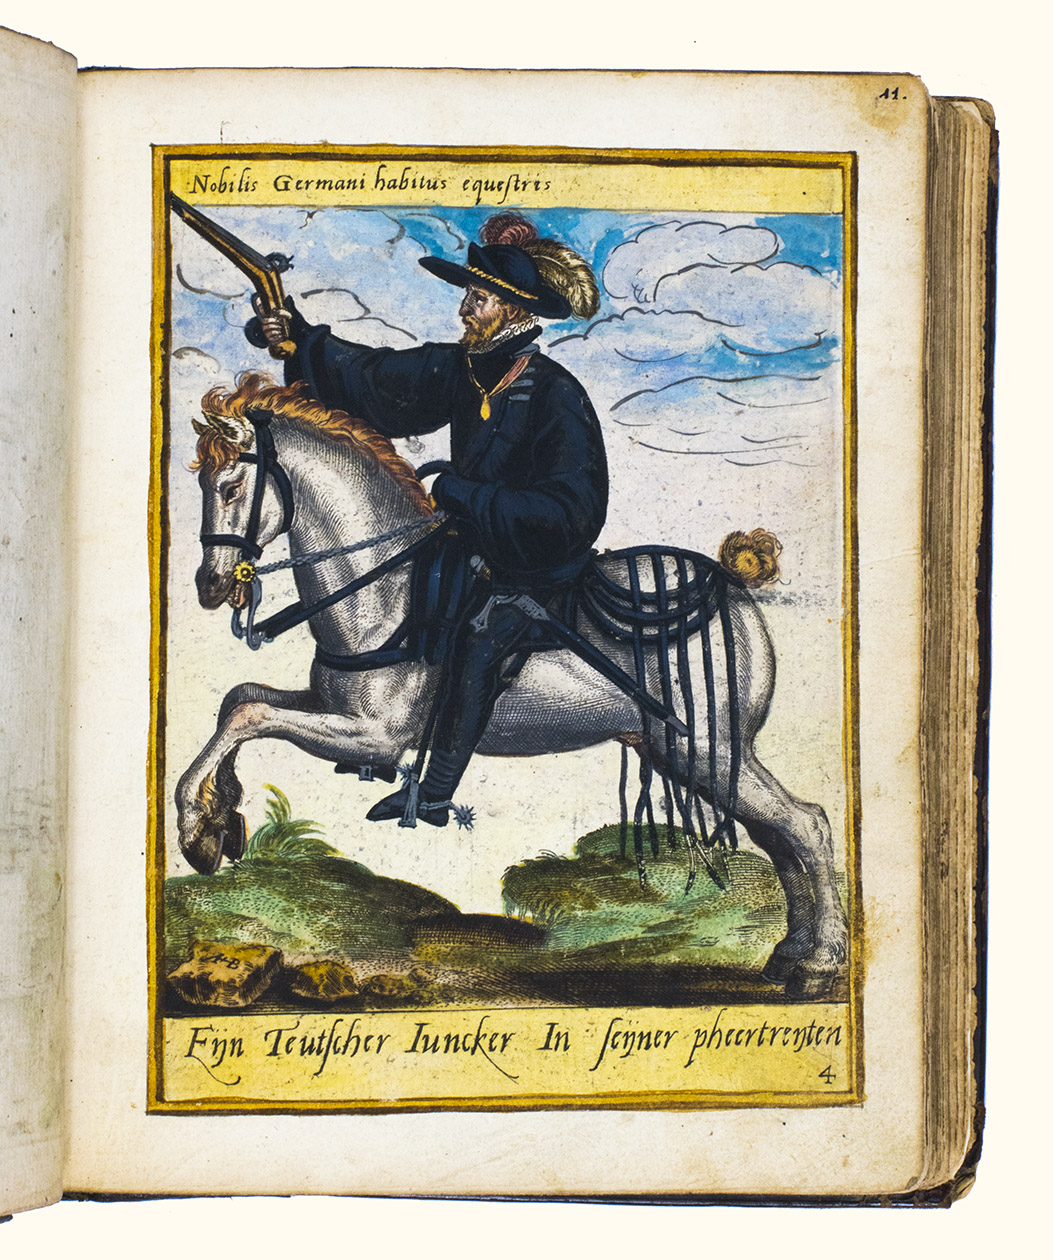 11.
Nobilis Germani habitus equeſtris
AB
Eijn Teutſcher Iuncker In ſeijner pheertreijten
4